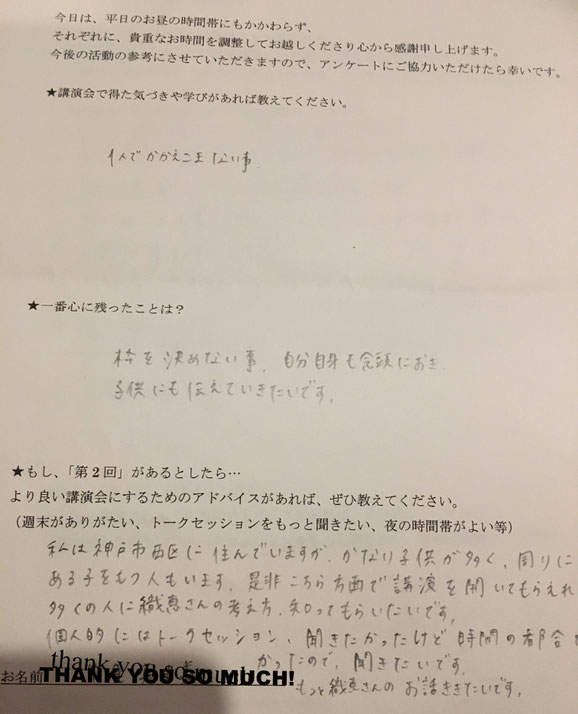 今日は、平日のお昼の時間帯にもかかわらず、
それぞれに、貴重なお時間を調整してお越しくださり心から感謝申し上げます。
今後の活動の参考にさせていただきますので、アンケートにご協力いただけたら幸いです。
★講演会で得た気づきや学びがあれば教えてください。
1人でかかえこまない事.
★一番心に残ったことは？
枠を決めない事. 自分自身も念頭におき.
子供にも伝えていきたいです.
★もし、「第２回」があるとしたら…
より良い講演会にするためのアドバイスがあれば、ぜひ教えてください。
（週末がありがたい、トークセッションをもっと聞きたい、夜の時間帯がよい等）
私は神戸市西区に住んでいますが. かなり子供が多く、周りに
ある子をもつ人もいます. 是非こちら方面で講演を開いてもらえれ
多くの人に織恵さんの考え方. 知ってもらいたいです.
個人的にはトークセッション、聞きたかったけど時間の都合で
かったので、聞きたいです.
もっと織恵さんのお話ききたいです.
お名前
thank you so much
THANK YOU SO MUCH!